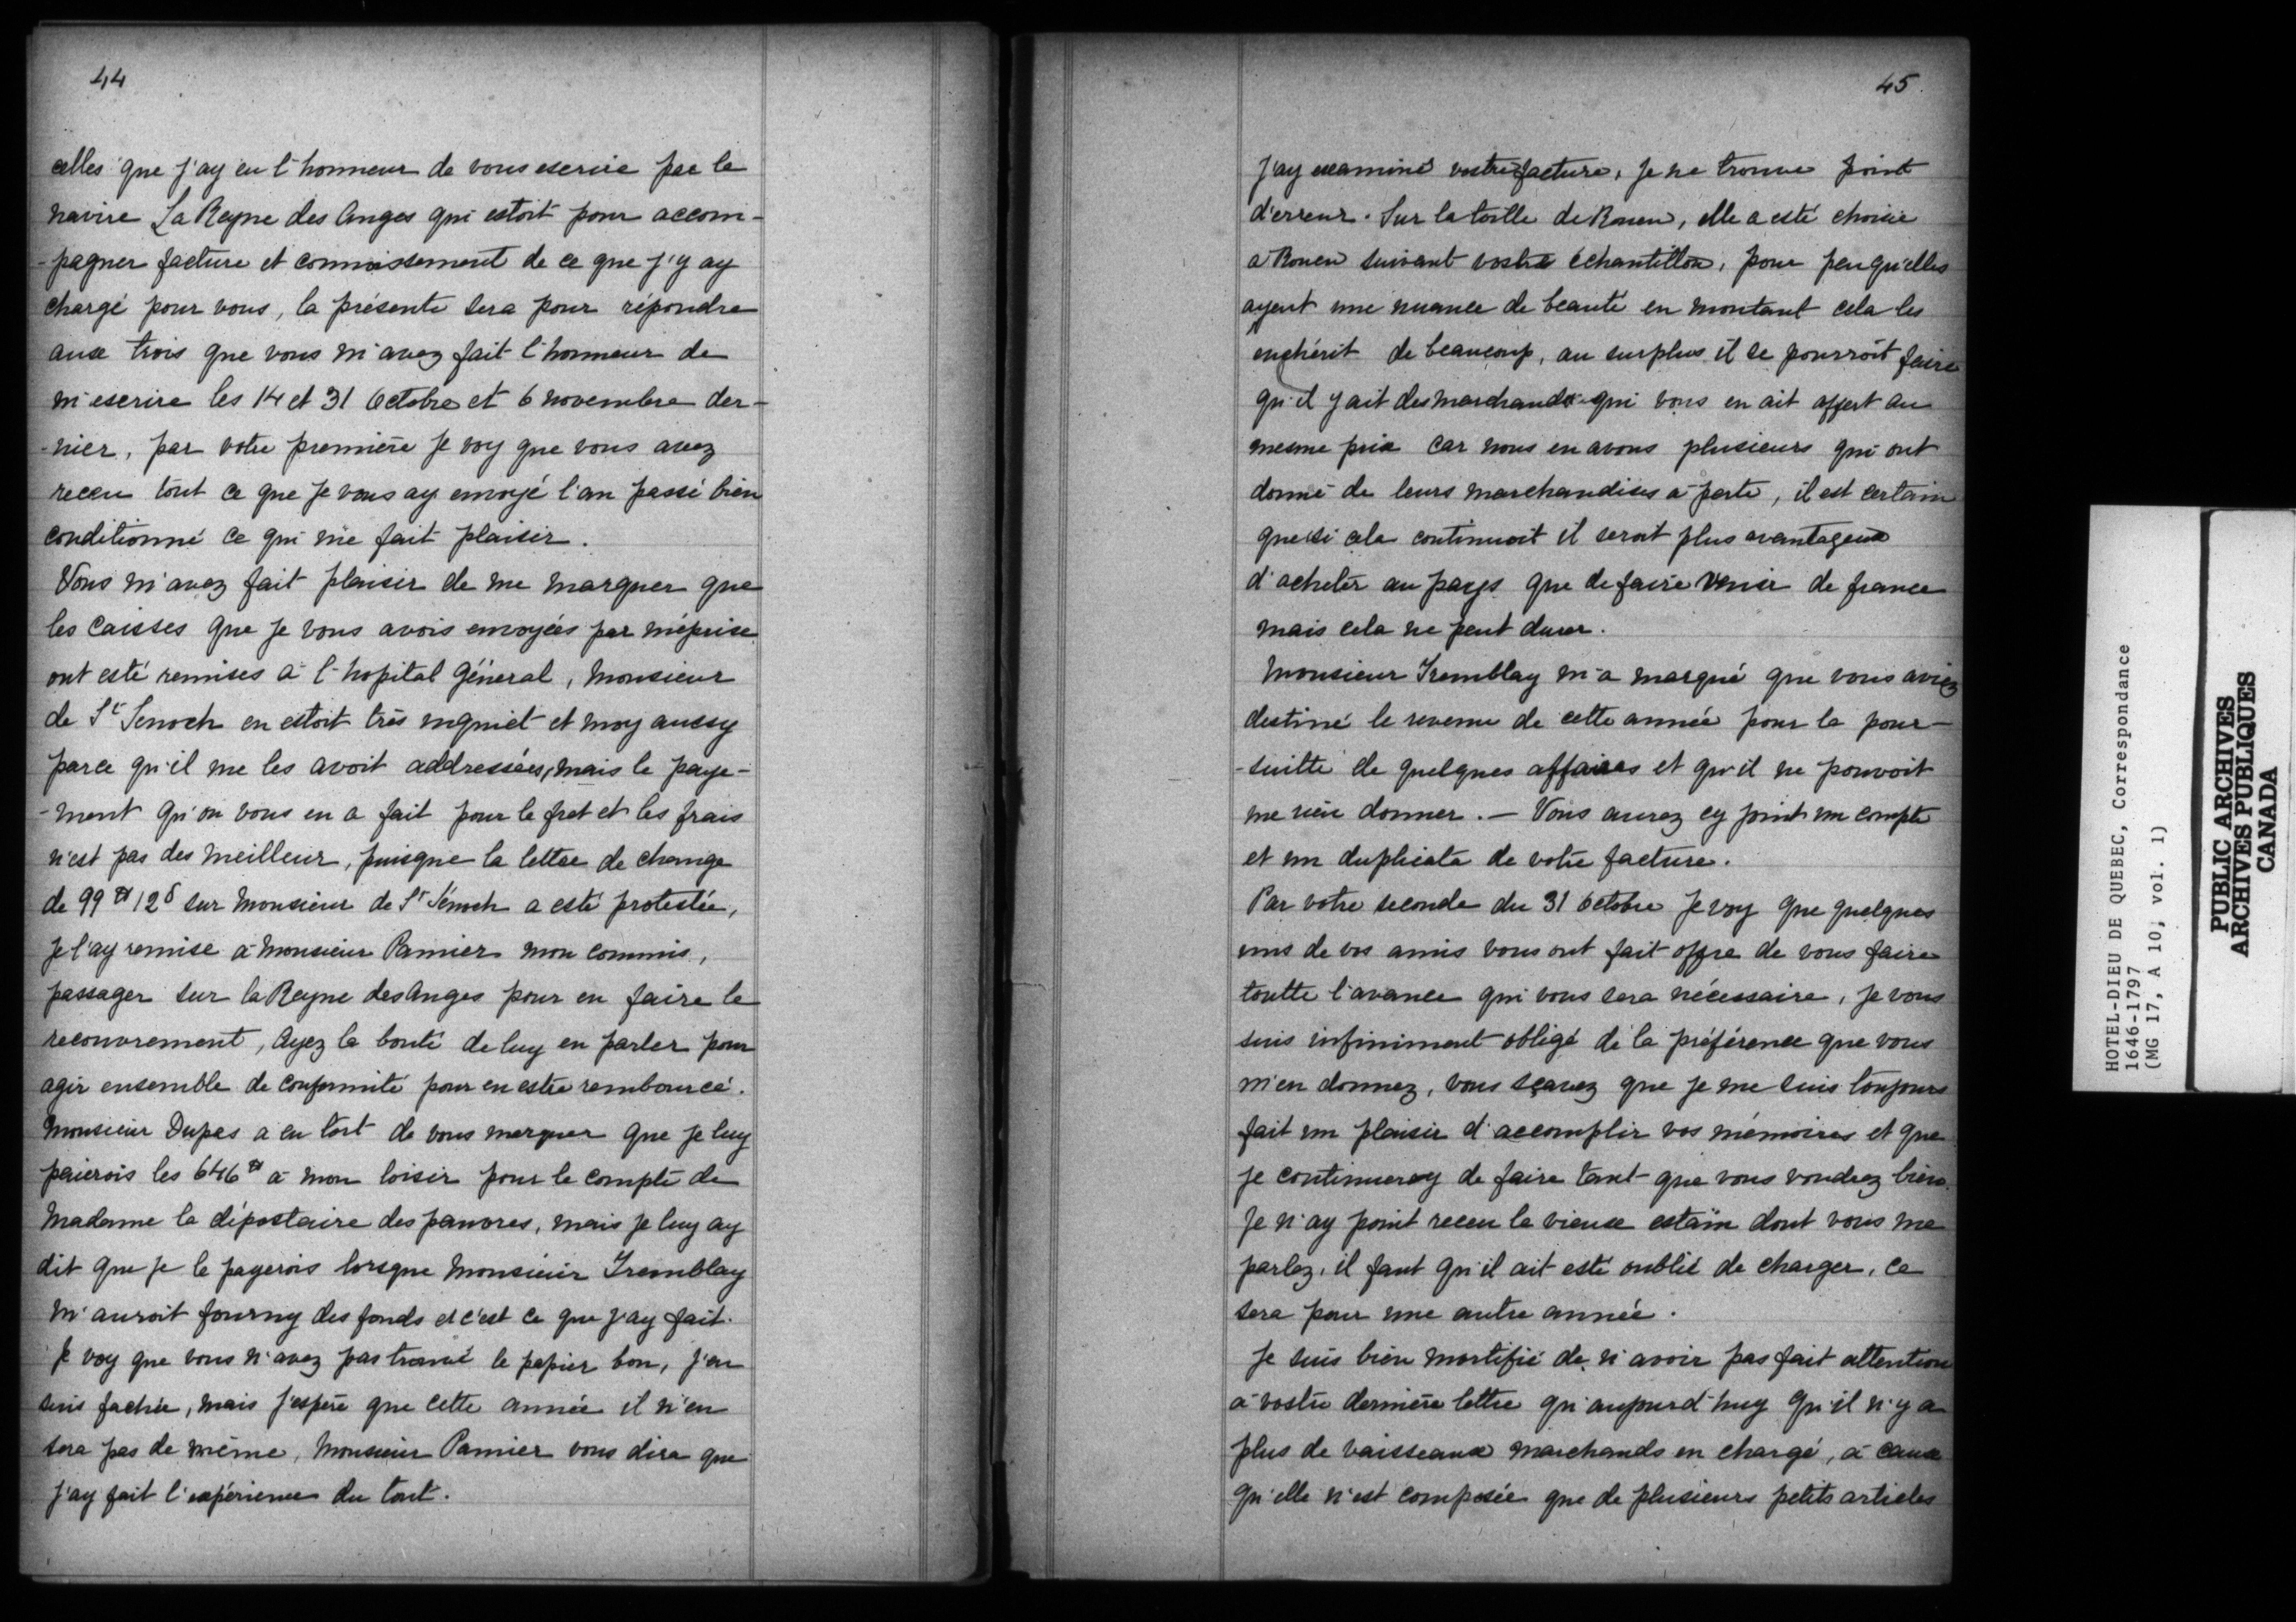 44
celles que j'ay eu l'honneur de vous escrire par le
navire La Reyne des Anges qui estoit pour accom-
-pagner facture et connoissement de ce que j'y ay
chargé pour vous, la présente sera pour répondre
aux trois que vous m'avez fait l'honneur de
m'escrire les 14 et 31 Octobre et 6 novembre der-
-nier, par votre première je voy que vous avez
receu tout ce que je vous ay envoyé l'an passé bien
conditionné ce qui me fait plaisir.
Vous m'avez fait plaisir de me marquer que
les caisses que je vous avois envoyées par méprise
ont esté remises à l'hopital Général, Monsieur
de St Senoch en estoit très inquiet et moy aussy
parce qu'il me les avoit addressées, mais le paye-
-ment qu'on vous en a fait pour le fret et les frais
n'est pas des meilleur, puisque la lettre de change
de 99 ₶ 12 s sur Monsieur de St Sénoch a esté protestée,
je l'ay remise à Monsieur Pamier mon commis,
passager sur la Reyne des Anges pour en faire le
recouvrement, Ayez la bonté de luy en parler pour
agir ensemble de conformité pour en estre remboursé.
Monsieur Dupas a eu tort de vous marquer que je luy
paierois les 646 ₶ à mon loisir pour le compte de
Madame la dépostaire des pauvres, mais je luy ay
dit que je le payerois lorsque Monsieur Tremblay
m'auroit fourny des fonds et c'est ce que j'ay fait.
Je voy que vous n'avez pas trouvé le papier bon, j'en
suis fachée, mais j'espère que cette année il n'en
sera pas de même, Monsieur Pamier vous dira que
j'ay fait l'expérience du tout.
45.
J'ay examiné vostre facture, je ne trouve point
d'erreur. Sur la toille de Rouen, elle a esté choisie
a Rouen suivant vostre échantillon, pour peu qu'elles
ayent une nuance de beauté en montant cela les
enchérit de beaucoup, au surplus il se pourroit faire
qu'il y ait des marchands qui vous en ait offert au
mesme prix car nous en avons plusieurs qui ont
donné de leurs marchandises à perte, il est certain
que si cela continuoit il seroit plus avantageux
d'acheter au pays que de faire venir de france
mais cela ne peut durer.
Monsieur Tremblay m'a marqué que vous aviez
destiné le revenu de cette année pour la pour-
-suitte de quelques affaires et qu'il ne pouvoit
me rien donner. — Vous aurez cy joint un compte
et un duplicata de votre facture.
Par votre seconde du 31 octobre je voy que quelques
uns de vos amis vous ont fait offre de vous faire
toutte l'avance qui vous sera nécessaire, je vous
suis infiniment obligé de la préférence que vous
m'en donnez, vous sçavez que je me suis toujours
fait un plaisir d'accomplir vos mémoires et que
je continueray de faire tant que vous voudrez bien.
Je n'ay point receu le vieux estaïn dont vous me
parlez, il faut qu'il ait esté oublié de charger, ce
sera pour une autre année.
Je suis bien mortifié de n'avoir pas fait attention
à vostre dernière lettre qu'aujourd'huy qu'il n'y a
plus de vaisseaux marchands en chargé, à cause
qu'elle n'est composée que de plusieurs petits articles
HOTEL-DIEU DE QUEBEC, Correspondance
1646-1797
(MG 17, A 10, vol. 1)
PUBLIC ARCHIVES
ARCHIVES PUBLIQUES
CANADA